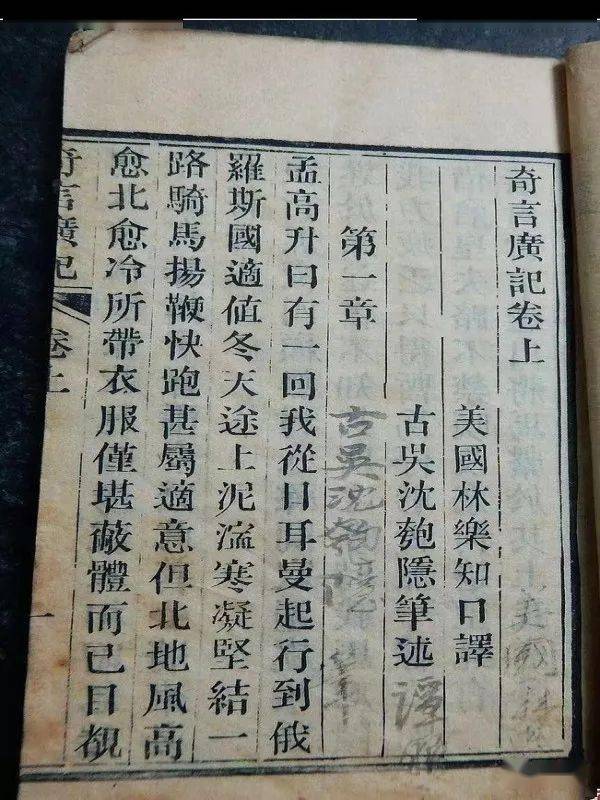 奇言廣記卷上
美國林樂知口譯
古吳沈匏隱筆述
第一章
古吳沈匏隱
孟高升曰有一回我從日耳曼起行到俄
羅斯國適值冬天途上泥濘寒凝堅結一
路騎馬揚鞭快跑甚屬適意但北地風高
愈北愈冷所帶衣服僅堪蔽體而已目覩
奇言廣記 卷上 一